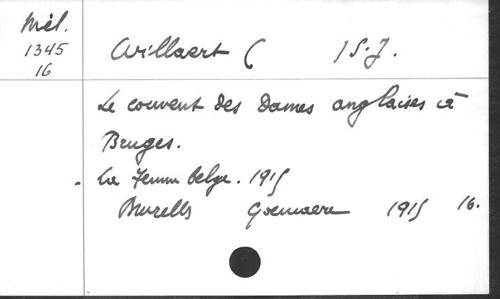 Mél.
1345
16
Willaert ( / S.J.
Le couvent des Dames anglaises à
Bruges.
La Femme belge. 1915
Bruxelles Goemaere 1915 16.